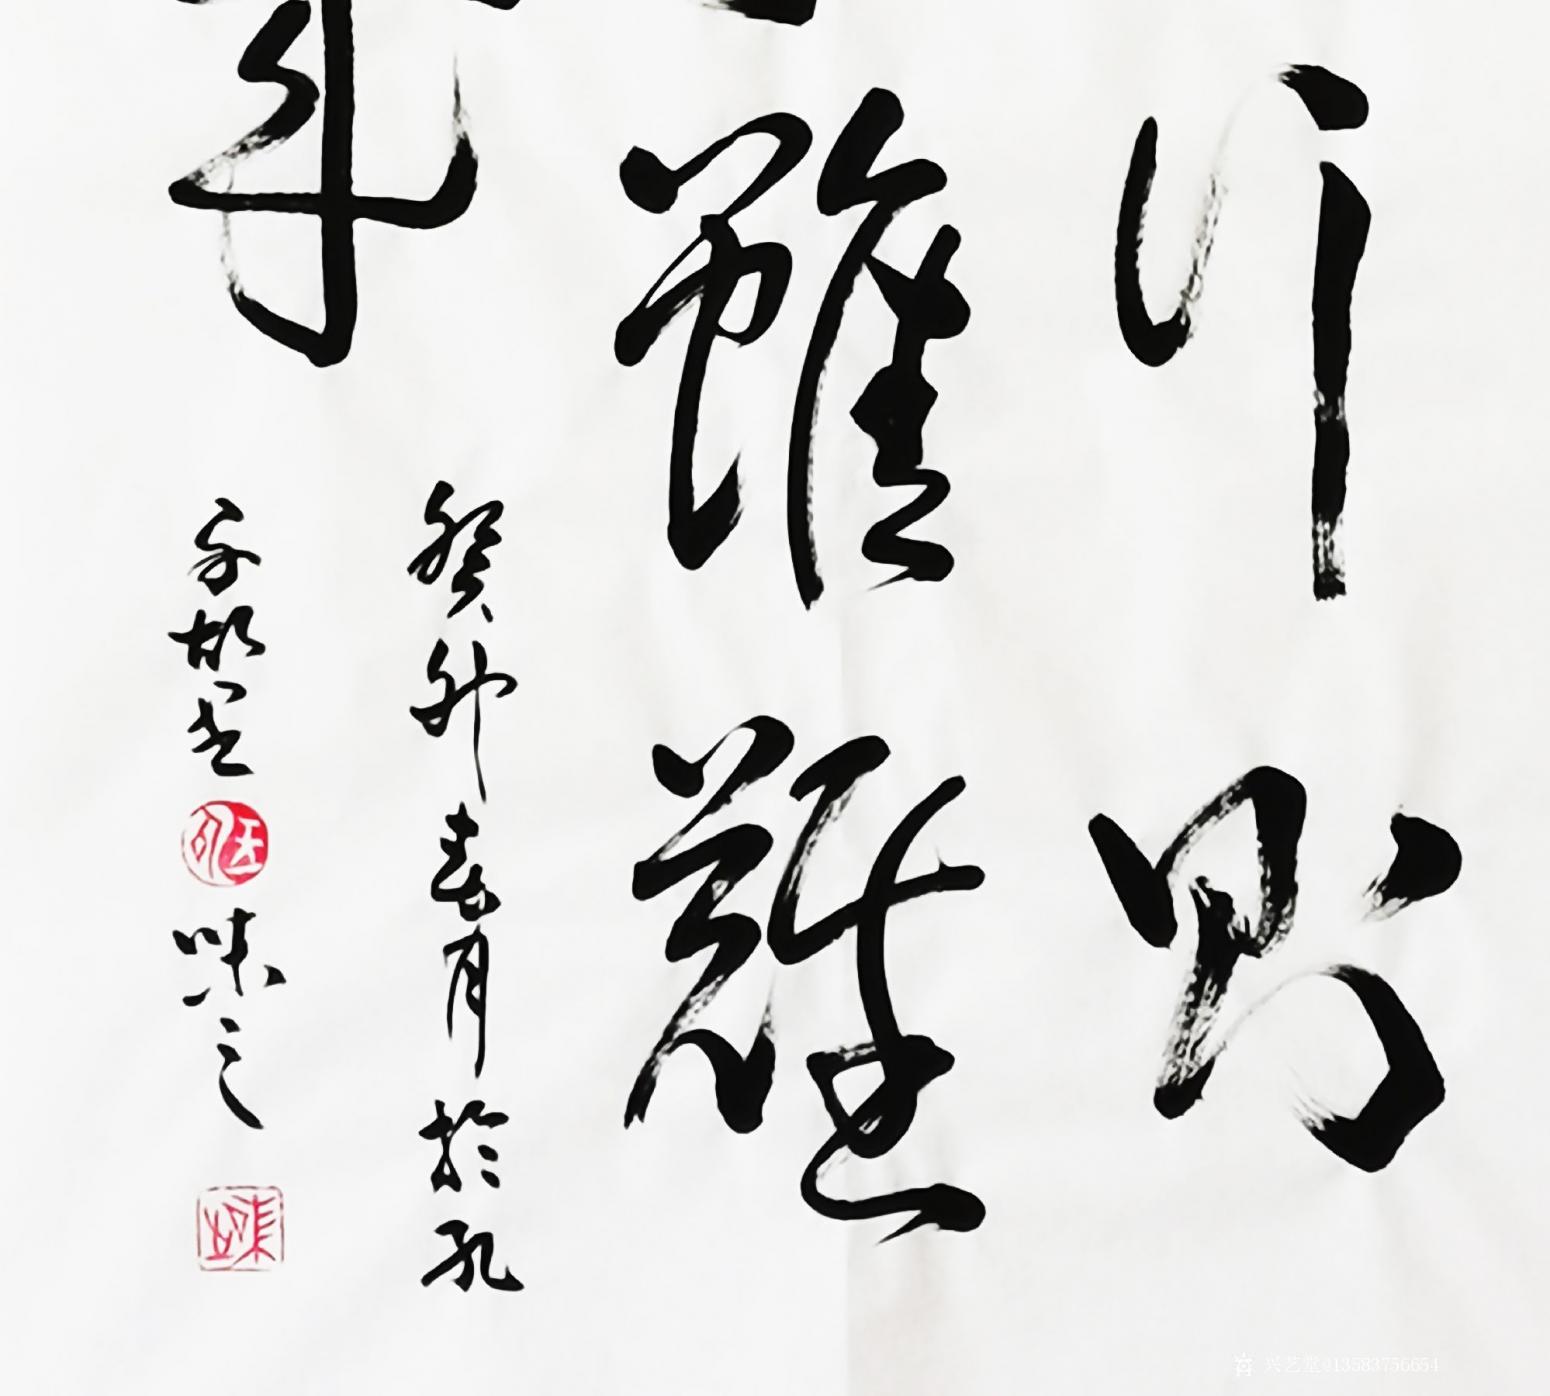 行则
雖難
成
癸卯春月於孔
子故里
味之
兴艺堂@13583756654